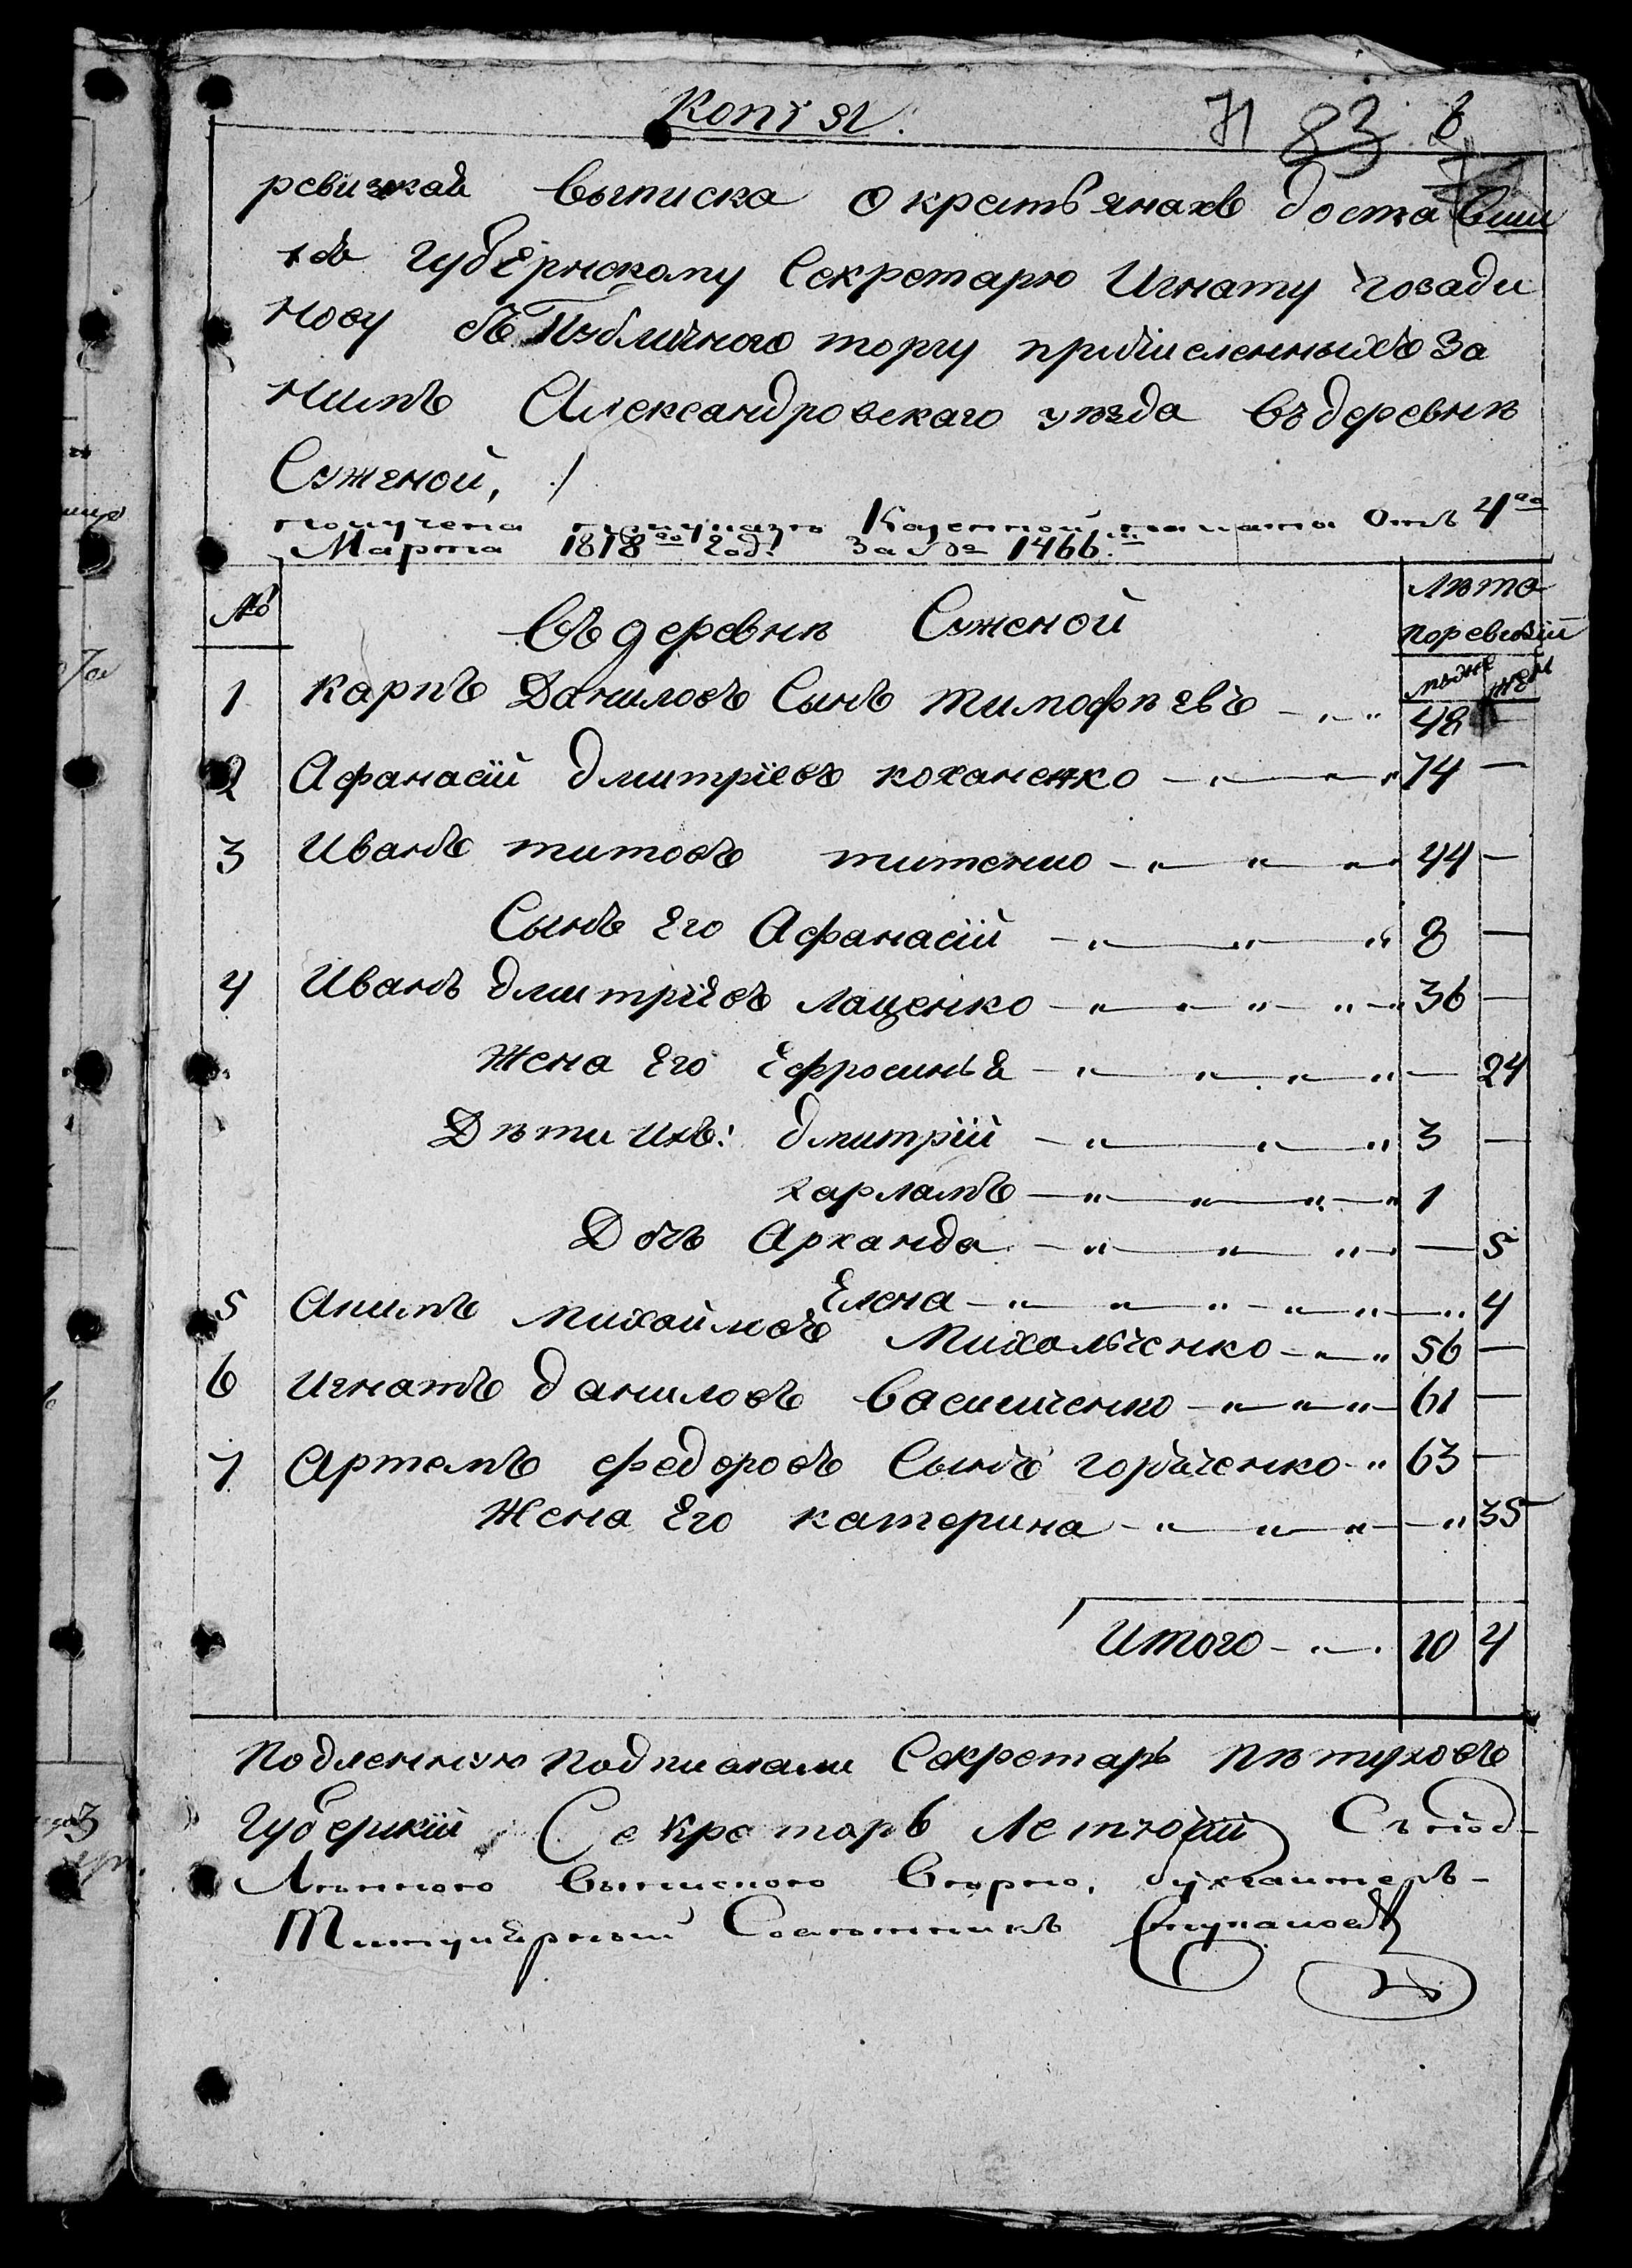 Копія. 71 83 8
ревизкая выписка о крестьянахъ доставши
хъ Губернскому Секретарю Игнату Гозади
нову съ Публичного торгу причисленныхъ за
нимъ Александровскаго уезда въ деревнѣ
Суженой, /
получена при указѣ Казенной палаты Отъ 4го
Марта 1818го года за № 1466.
№ Въ деревнѣ Суженой Лѣта поревизіи
муже жен
1 Карпъ Даниловъ Сынъ тимофѣевъ 48 —
2 Афанасій дмитріевъ коханенко 74 —
3 Иванъ титовъ титенко 44 —
Сынъ Его Афанасій 8 —
4 Иванъ дмитріевъ лащенко 36 —
Жена Его Ефросинья — 24
Дѣти ихъ: дмитрій 3 —
харламъ 1
Дочь Арханда — 5
Елена — 4
5 Акимъ михайловъ Михальченко 56 —
6 игнатъ даниловъ василченко 61 —
7 Артемъ федоровъ Сынъ горбченко 63 —
Жена Его катерина — 35
Итого 10 4
Подленную подписали Секретарь пѣтуховъ
Губернкій Секретарь Съ под-
Лѣнного выпискою вѣрно, бухгалтеръ-
Титулярный Совѣтникъ Ступаковъ